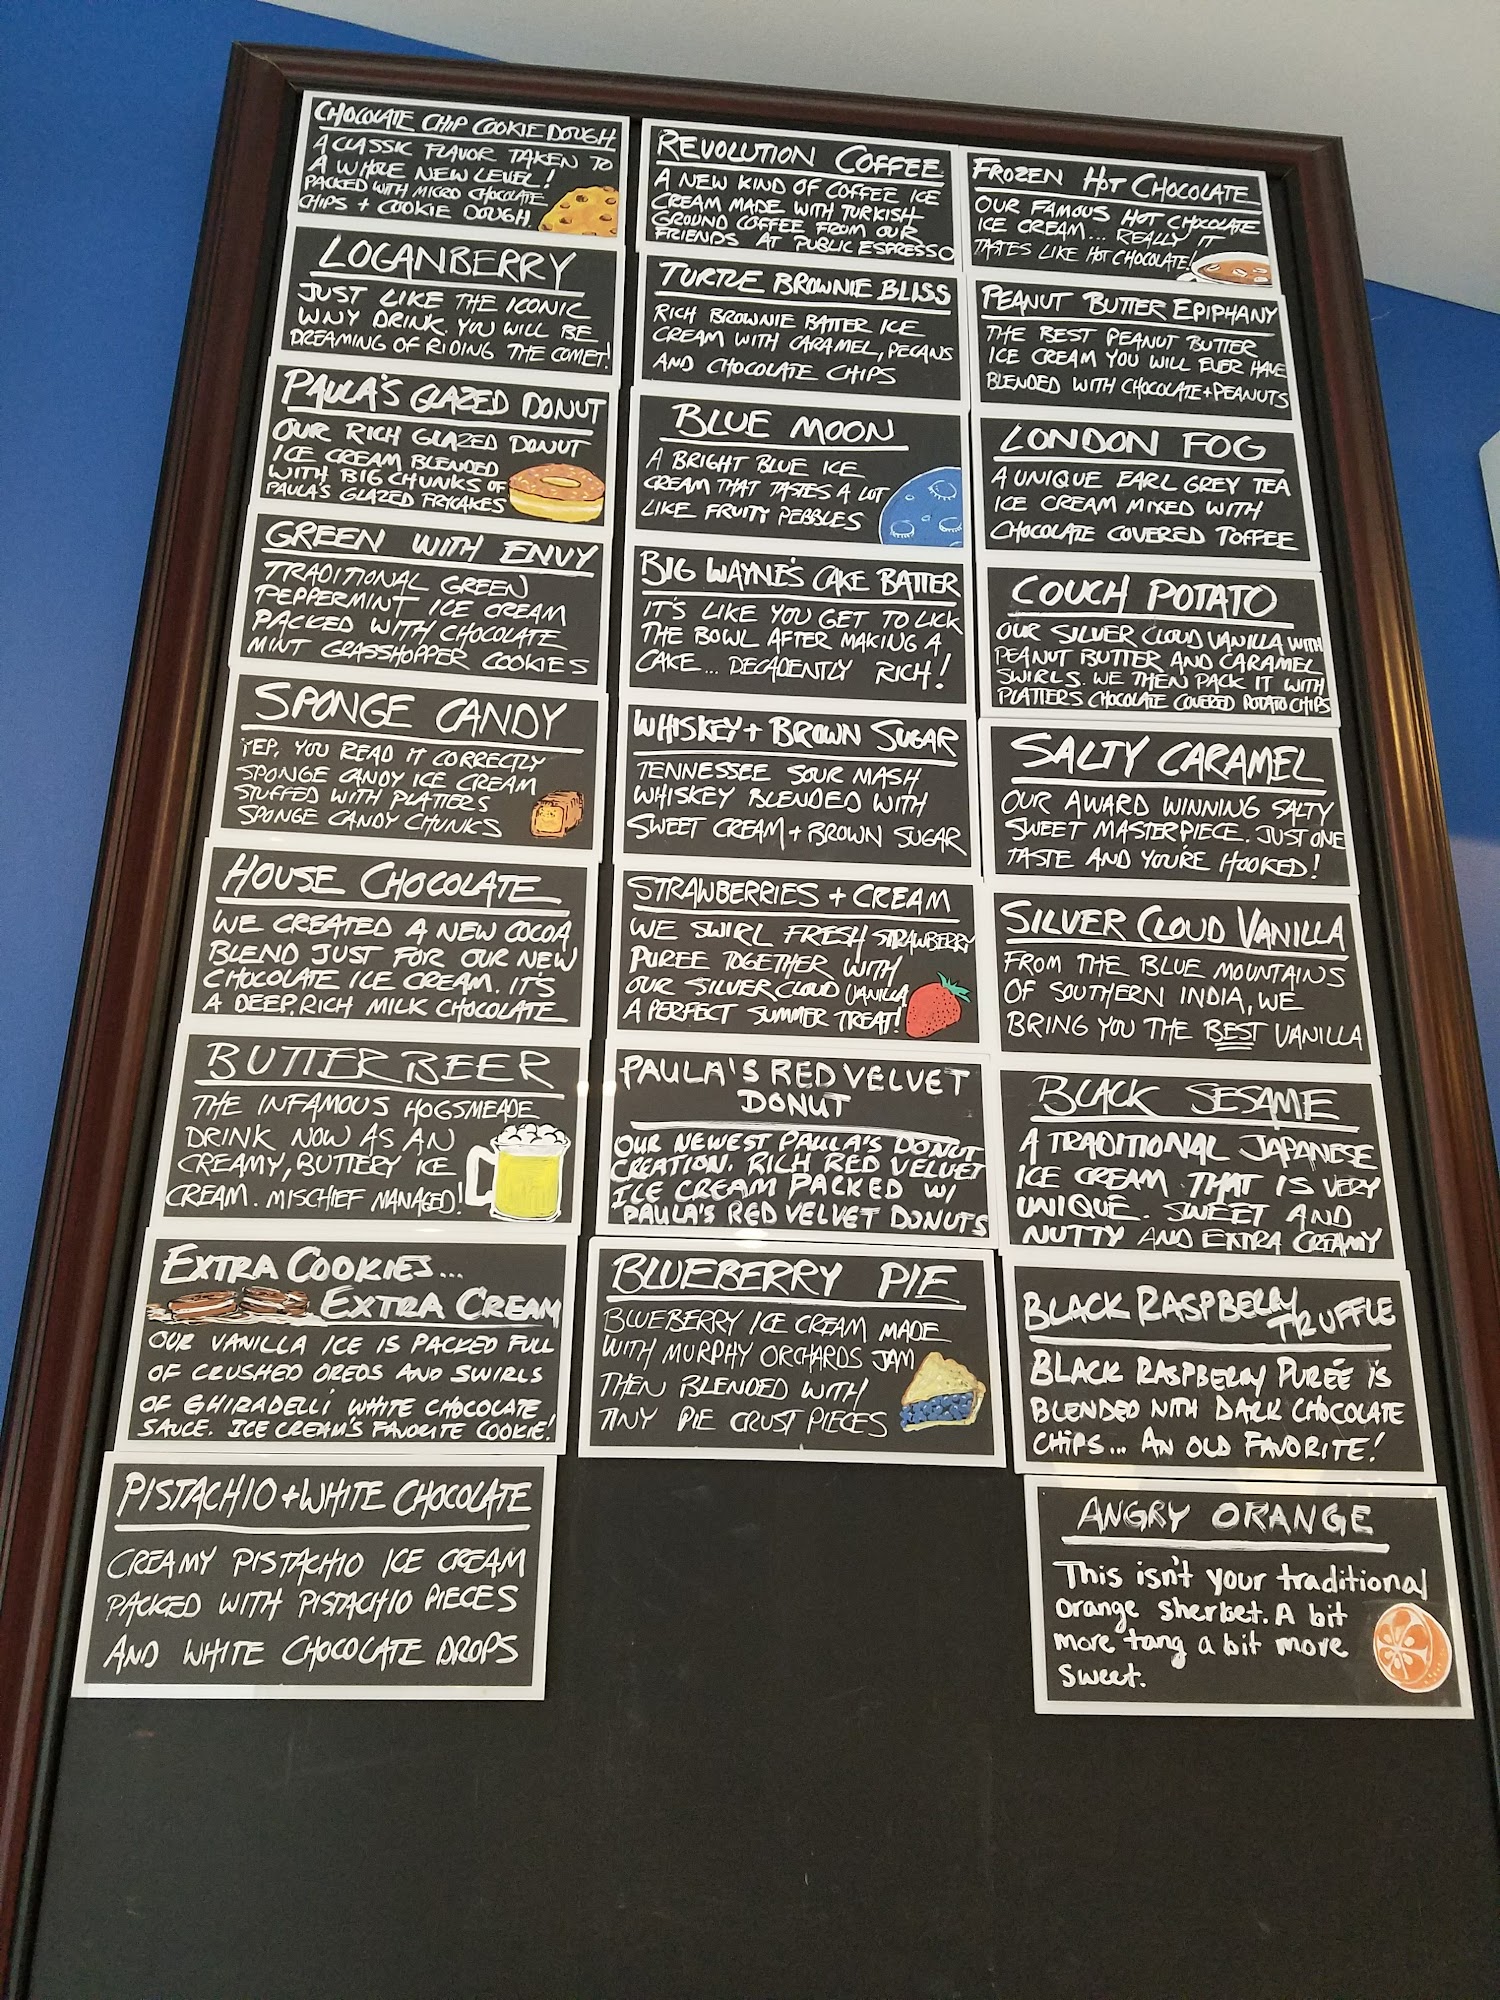 CHOCOLATE CHIP COOKIE DOUGH
A CLASSIC FLAVOR TAKEN TO
A WHOLE NEW LEVEL!
PACKED WITH MICRO CHOCOLATE
CHIPS + COOKIE DOUGH.
LOGANBERRY
JUST LIKE THE ICONIC
WNY DRINK. YOU WILL BE
DREAMING OF RIDING THE COMET!
PAULA'S GLAZED DONUT
OUR RICH GLAZED DONUT
ICE CREAM BLENDED
WITH BIG CHUNKS OF
PAULA'S GLAZED FRYCAKES
GREEN WITH ENVY
TRADITIONAL GREEN
PEPPERMINT ICE CREAM
PACKED WITH CHOCOLATE
MINT GRASSHOPPER COOKIES
SPONGE CANDY
YEP, YOU READ IT CORRECTLY
SPONGE CANDY ICE CREAM
STUFFED WITH PLATTERS
SPONGE CANDY CHUNKS
HOUSE CHOCOLATE
WE CREATED A NEW COCOA
BLEND JUST FOR OUR NEW
CHOCOLATE ICE CREAM. IT'S
A DEEP, RICH MILK CHOCOLATE
BUTTER BEER
THE INFAMOUS HOGSMEADE
DRINK NOW AS AN
CREAMY, BUTTERY ICE
CREAM. MISCHIEF MANAGED!
EXTRA COOKIES...
EXTRA CREAM
OUR VANILLA ICE IS PACKED FULL
OF CRUSHED OREOS AND SWIRLS
OF GHIRADELLI WHITE CHOCOLATE
SAUCE. ICE CREAM'S FAVORITE COOKIE!
PISTACHIO + WHITE CHOCOLATE
CREAMY PISTACHIO ICE CREAM
PACKED WITH PISTACHIO PIECES
AND WHITE CHOCOLATE DROPS
REVOLUTION COFFEE
A NEW KIND OF COFFEE ICE
CREAM MADE WITH TURKISH
GROUND COFFEE FROM OUR
FRIENDS AT PUBLIC ESPRESSO
TURTLE BROWNIE BLISS
RICH BROWNIE BATTER ICE
CREAM WITH CARAMEL, PECANS
AND CHOCOLATE CHIPS
BLUE MOON
A BRIGHT BLUE ICE
CREAM THAT TASTES A LOT
LIKE FRUITY PEBBLES
BIG WAYNE'S CAKE BATTER
IT'S LIKE YOU GET TO LICK
THE BOWL AFTER MAKING A
CAKE... DECADENTLY RICH!
WHISKEY + BROWN SUGAR
TENNESSEE SOUR MASH
WHISKEY BLENDED WITH
SWEET CREAM + BROWN SUGAR
STRAWBERRIES + CREAM
WE SWIRL FRESH STRAWBERRY
PUREE TOGETHER WITH
OUR SILVER CLOUD VANILLA
A PERFECT SUMMER TREAT!
PAULA'S RED VELVET
DONUT
OUR NEWEST PAULA'S DONUT
CREATION. RICH RED VELVET
ICE CREAM PACKED W/
PAULA'S RED VELVET DONUTS
BLUEBERRY PIE
BLUEBERRY ICE CREAM MADE
WITH MURPHY ORCHARDS JAM
THEN BLENDED WITH
TINY PIE CRUST PIECES
FROZEN HOT CHOCOLATE
OUR FAMOUS HOT CHOCOLATE
ICE CREAM... REALLY IT
TASTES LIKE HOT CHOCOLATE!
PEANUT BUTTER EPIPHANY
THE BEST PEANUT BUTTER
ICE CREAM YOU WILL EVER HAVE
BLENDED WITH CHOCOLATE + PEANUTS
LONDON FOG
A UNIQUE EARL GREY TEA
ICE CREAM MIXED WITH
CHOCOLATE COVERED TOFFEE
COUCH POTATO
OUR SILVER CLOUD VANILLA WITH
PEANUT BUTTER AND CARAMEL
SWIRLS. WE THEN PACK IT WITH
PLATTERS CHOCOLATE COVERED POTATO CHIPS
SALTY CARAMEL
OUR AWARD WINNING SALTY
SWEET MASTERPIECE. JUST ONE
TASTE AND YOU'RE HOOKED!
SILVER CLOUD VANILLA
FROM THE BLUE MOUNTAINS
OF SOUTHERN INDIA, WE
BRING YOU THE BEST VANILLA
BLACK SESAME
A TRADITIONAL JAPANESE
ICE CREAM THAT IS VERY
UNIQUE. SWEET AND
NUTTY AND EXTRA CREAMY
BLACK RASPBERRY
TRUFFLE
BLACK RASPBERRY PURÉE IS
BLENDED WITH DARK CHOCOLATE
CHIPS... AN OLD FAVORITE!
ANGRY ORANGE
This isn't your traditional
orange sherbet. A bit
more tang a bit more
sweet.